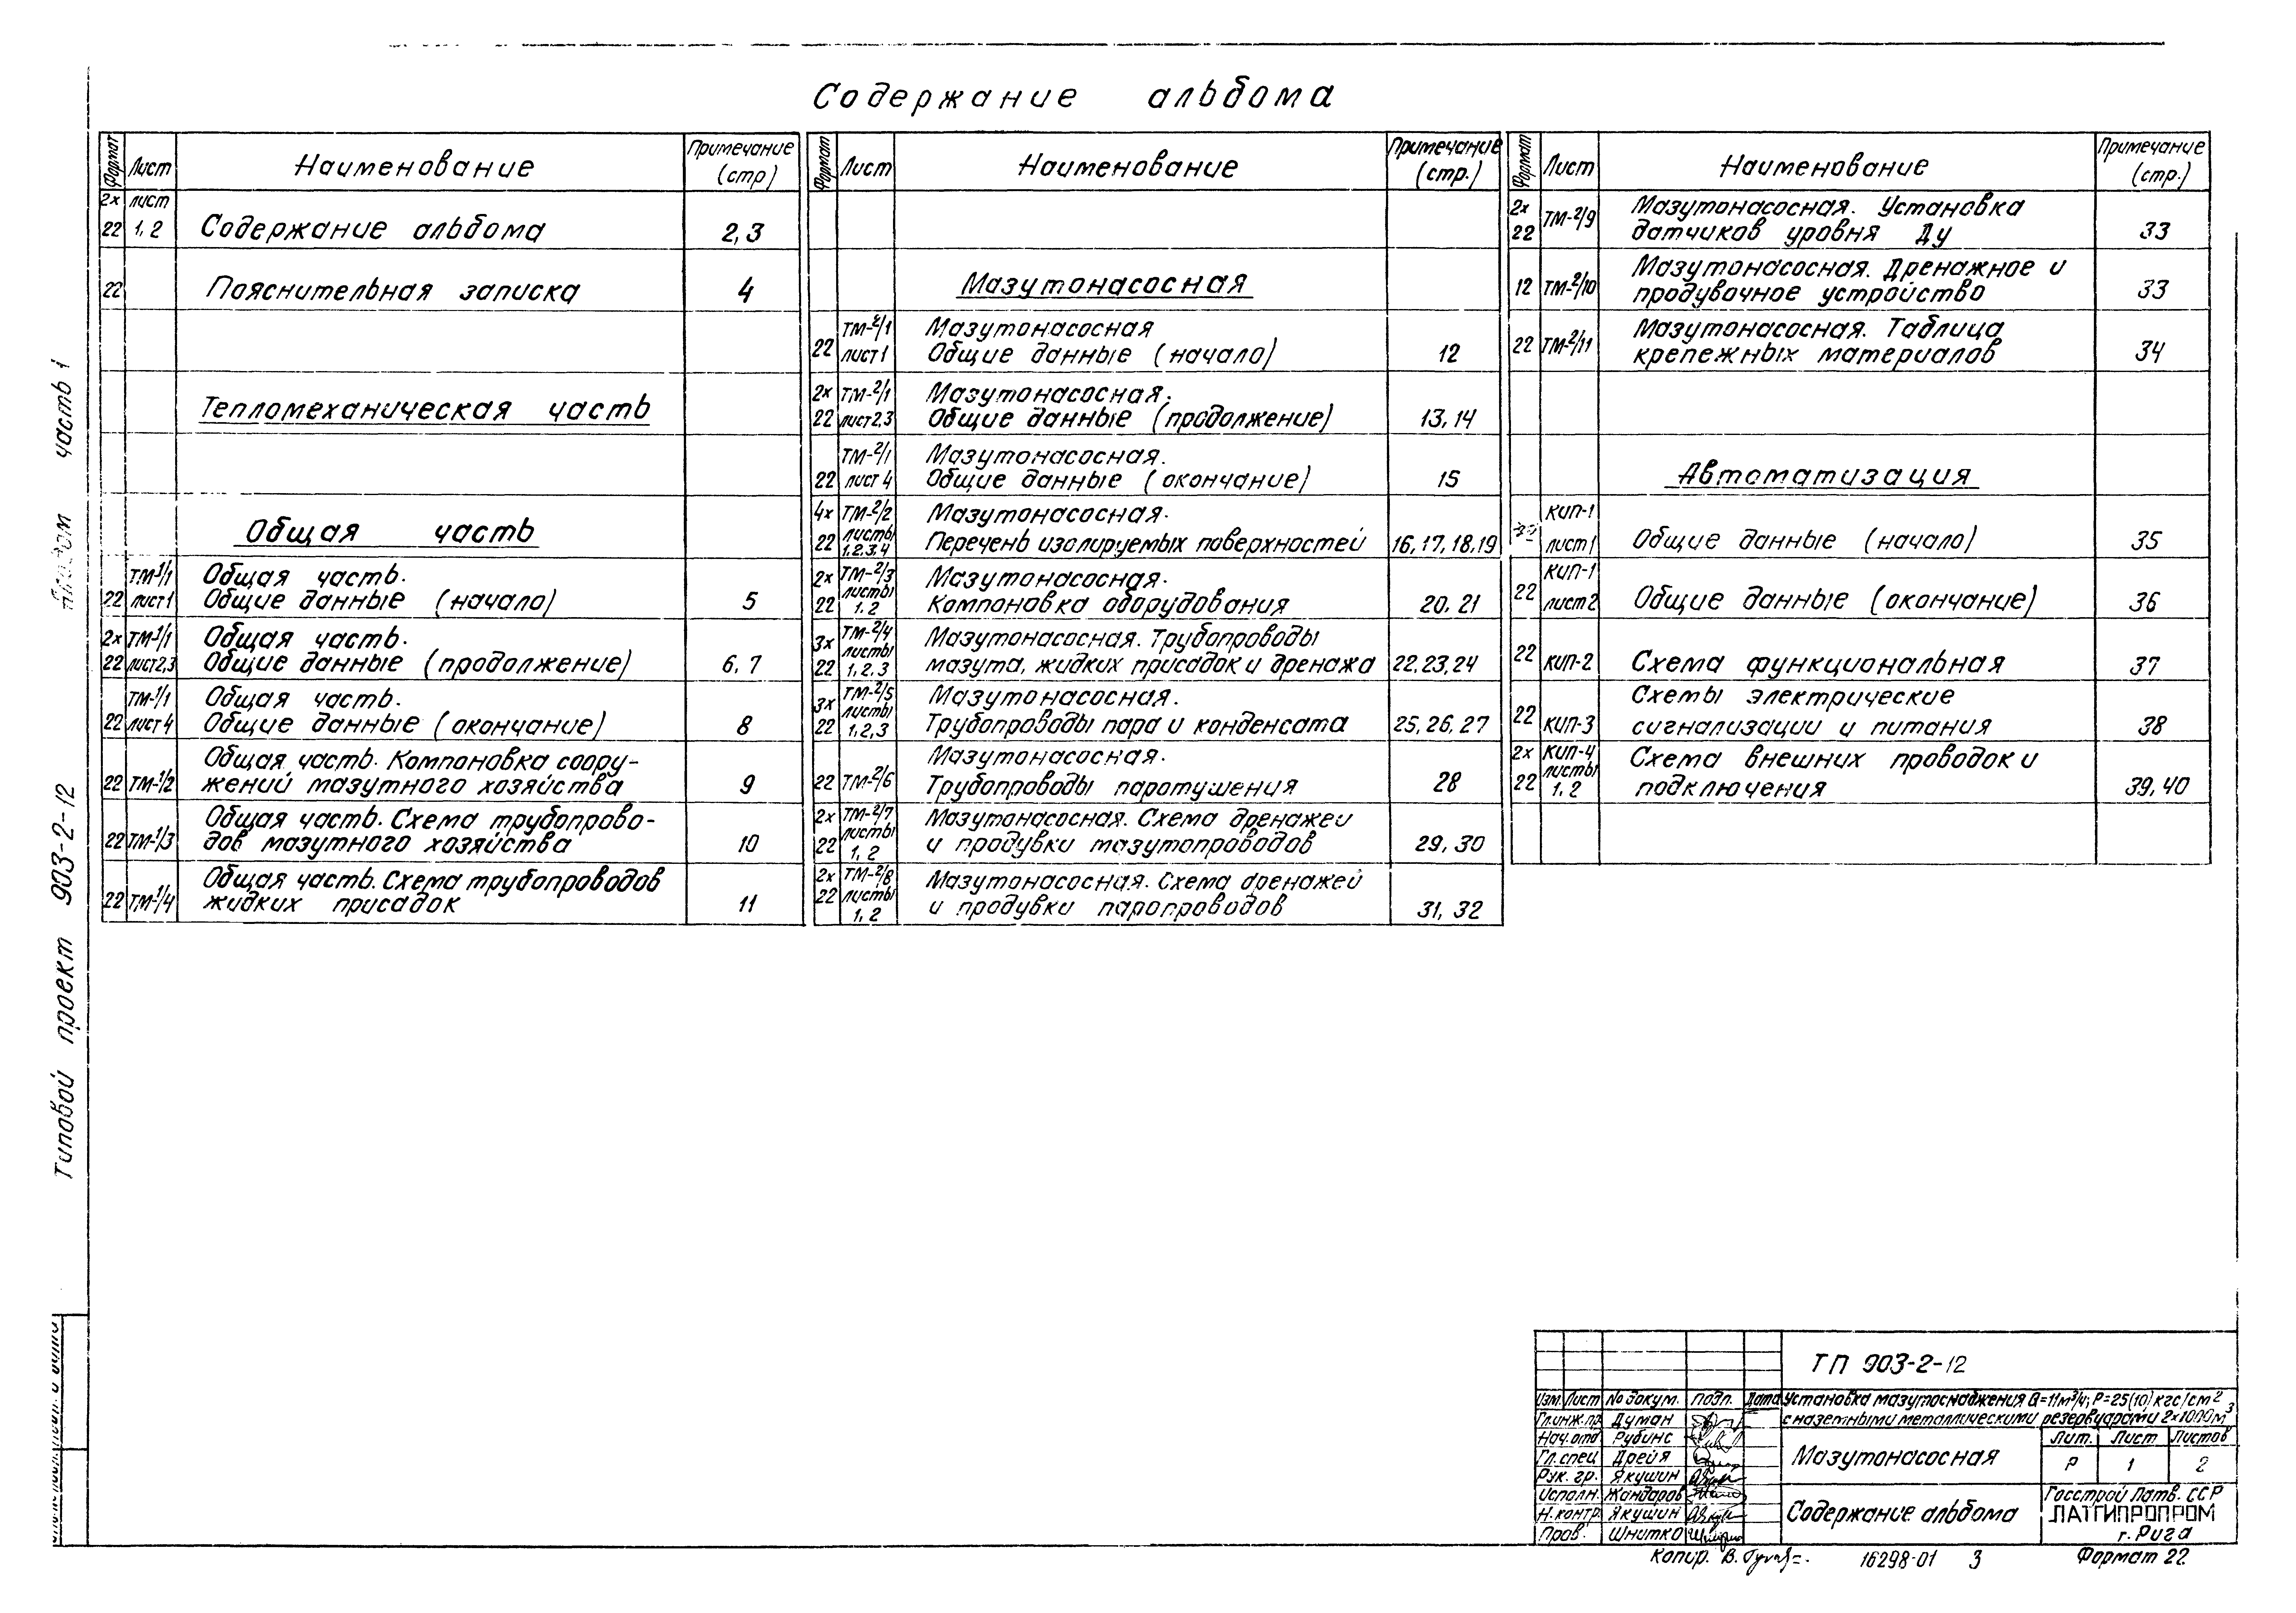 Содержание альбома
Формат Лист Наименование Примечание (стр)
2х лист
22 1,2 Содержание альбома 2,3
22 Пояснительная записка 4
Тепломеханическая часть
Общая часть
ТМ-1/1 Общая часть.
22 лист 1 Общие данные (начало) 5
2х ТМ-1/1 Общая часть.
22 лист 2,3 Общие данные (продолжение) 6,7
ТМ-1/1 Общая часть.
22 лист 4 Общие данные (окончание) 8
Общая часть. Компоновка соору-
22 ТМ-1/2 жений мазутного хозяйства 9
Общая часть. Схема трубопрово-
22 ТМ-1/3 дов мазутного хозяйства 10
Общая часть. Схема трубопроводов
22 ТМ-1/4 жидких присадок 11
Формат Лист Наименование Примечание (стр.)
Мазутонасосная
ТМ-2/1 Мазутонасосная
22 лист 1 Общие данные (начало) 12
2х ТМ-2/1 Мазутонасосная.
22 лист 2,3 Общие данные (продолжение) 13,14
ТМ-2/1 Мазутонасосная.
22 лист 4 Общие данные (окончание) 15
4х ТМ-2/2 Мазутонасосная.
22 листы 1,2,3,4 Перечень изолируемых поверхностей 16,17,18,19
2х ТМ-2/3 Мазутонасосная.
22 листы 1,2 Компоновка оборудования 20,21
3х ТМ-2/4 Мазутонасосная. Трубопроводы
22 листы 1,2,3 мазута, жидких присадок и дренажа 22,23,24
3х ТМ-2/5 Мазутонасосная.
22 листы 1,2,3 Трубопроводы пара и конденсата 25,26,27
Мазутонасосная.
22 ТМ-2/6 Трубопроводы паротушения 28
2х ТМ-2/7 Мазутонасосная. Схема дренажей
22 листы 1,2 и продувки мазутопроводов 29,30
2х ТМ-2/8 Мазутонасосная. Схема дренажей
22 листы 1,2 и продувки паропроводов 31,32
Формат Лист Наименование Примечание (стр.)
2х ТМ-2/9 Мазутонасосная. Установка
22 датчиков уровня Ду 33
Мазутонасосная. Дренажное и
12 ТМ-2/10 продувочное устройство 33
Мазутонасосная. Таблица
22 ТМ-2/11 крепежных материалов 34
Автоматизация
КИП-1
22 лист 1 Общие данные (начало) 35
КИП-1
22 лист 2 Общие данные (окончание) 36
22 КИП-2 Схема функциональная 37
Схемы электрические
22 КИП-3 сигнализации и питания 38
2х КИП-4 Схема внешних проводок и
22 листы 1,2 подключения 39,40
Типовой проект 903-2-12 Альбом часть 1
ТП 903-2-12
Изм. Лист № докум. Подп. Дата
Установка мазутоснабжения Q=11м³/ч; Р=25(10)кгс/см²
с наземными металлическими резервуарами 2х1000м³
Гл.инж.пр. Думан
Нач.отд Рубинс
Гл.спец Дрейя
Рук. гр. Якушин
Исполн. Жандаров
Н.контр. Якушин
Пров. Шнитко
Мазутонасосная
Лит. Лист Листов
Р 1 2
Содержание альбома
Госстрой Латв. ССР
ЛАТГИПРОПРОМ
г. Рига
Копир. В. 16298-01 3 Формат 22